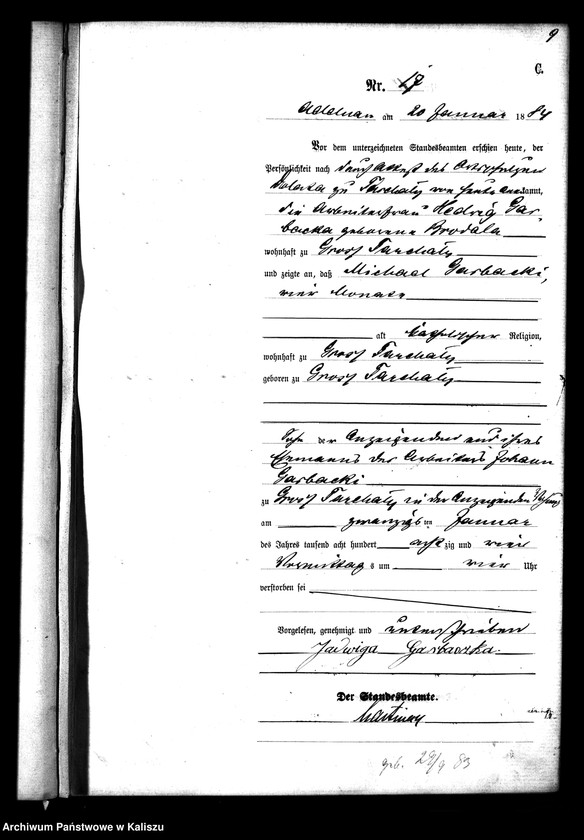 9
C.
Nr. 17
Adelnau am 20 Januar 1884
Vor dem unterzeichneten Standesbeamten erschien heute, der
Persönlichkeit nach durch Attest des Ortsschulzen
zu Tarchaly von heute anerkannt,
die Arbeiterfrau Hedwig Gar-
backa geborene Brodala
wohnhaft zu Gross Tarchaly
und zeigte an, daß Michael Garbacki,
vier Monate
alt katholischer Religion,
wohnhaft zu Gross Tarchaly
geboren zu Gross Tarchaly
Sohn der Anzeigenden und ihres
Ehemanns des Arbeiters Johann
Garbacki
zu Gross Tarchaly in der Anzeigenden Wohnung
am zwanzigs ten Januar
des Jahres tausend acht hundert acht zig und vier
Vormittag s um vier Uhr
verstorben sei
Vorgelesen, genehmigt und unterschrieben
Jadwiga Garbaczka
Der Standesbeamte.
geb. 29/9 83
Archiwum Państwowe w Kaliszu